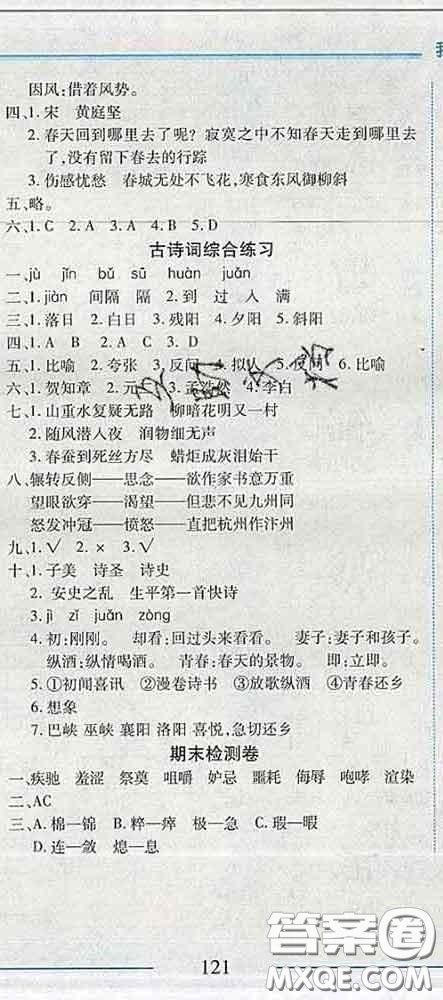 我
因风:借着风势。
四、1.宋 黄庭坚
2.春天回到哪里去了呢? 寂寞之中不知春天走到哪里去
了,没有留下春去的行踪
3.伤感忧愁 春城无处不飞花,寒食东风御柳斜
五、略。
六、1.C 2.A 3.A 4.B 5.D
古诗词综合练习
一、jù jǐn bǔ sū huàn juǎn
二、1.jiàn 间隔 隔 2.到 过 入 满
三、1.落日 2.白日 3.残阳 4.夕阳 5.斜阳
四、1.D 2.A 3.B 4.B
五、1.比喻 2.夸张 3.反问 4.拟人 5.反问 6.比喻
六、1.贺知章 2.元 3.孟浩然 4.李白
七、1.山重水复疑无路 柳暗花明又一村
2.随风潜入夜 润物细无声
3.春蚕到死丝方尽 蜡炬成灰泪始干
八、辗转反侧——思念——欲作家书意万重
望眼欲穿——渴望——但悲不见九州同
怒发冲冠——愤怒——直把杭州作汴州
九、1.√ 2.× 3.√
十、1.子美 诗圣 诗史
2.安史之乱 生平第一首快诗
3.jì zǐ juǎn zòng
4.初:刚刚。 却看:回过头来看看。 妻子:妻子和孩子。
纵酒:纵情喝酒。 青春:春天的景物。 即:立即。
5.①初闻喜讯 ②漫卷诗书 ③放歌纵酒 ④青春还乡
6.想象
7.巴峡 巫峡 襄阳 洛阳 喜悦,急切还乡
期末检测卷
一、疾驰 羞涩 祭奠 咀嚼 妒忌 噩耗 侮辱 咆哮 渲染
二、AC
三、A.棉—锦 B.粹—瘁 极—急 C.瑕—暇
D.连—敛 熄—息
121
答案圈
MXQE.COM